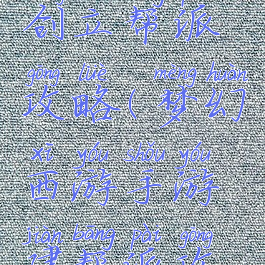 创立帮派
gōng lüè mèng huàn
攻略(梦幻
xī yóu shǒu yóu
西游手游
jiàn bāng pài gōng
建帮派攻